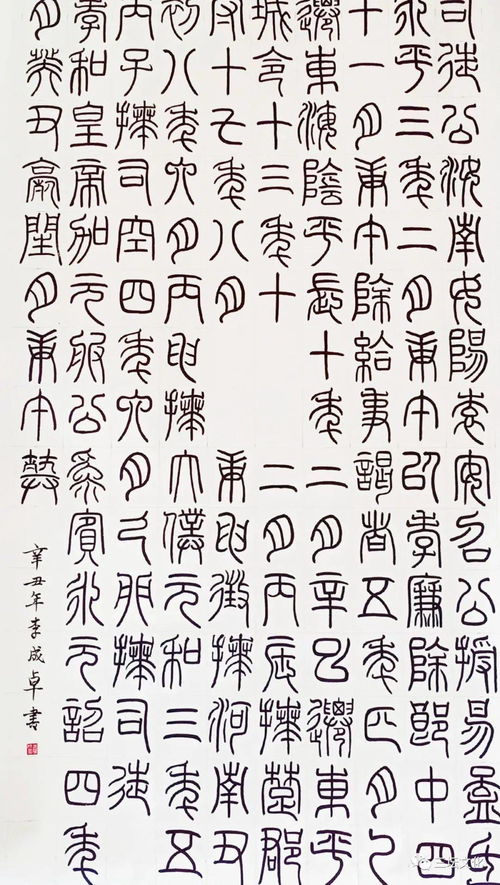 司徒公汝南女陽袁安召公授易孟氏
永平三年二月庚午以孝廉除郎中四
十一月庚午除給事謁者五年四月乙
遷東海陰平長十年二月辛巳遷東平
城令十三年十二月丙辰拜楚郡
守十七年八月庚申徵拜河南尹
初八年六月丙申拜太僕元和三年五
丙子拜司空四年六月己卯拜司徒
孝和皇帝加元服公為賓永元詔四年
月癸丑薨閏月庚午葬
辛丑年李成卓書